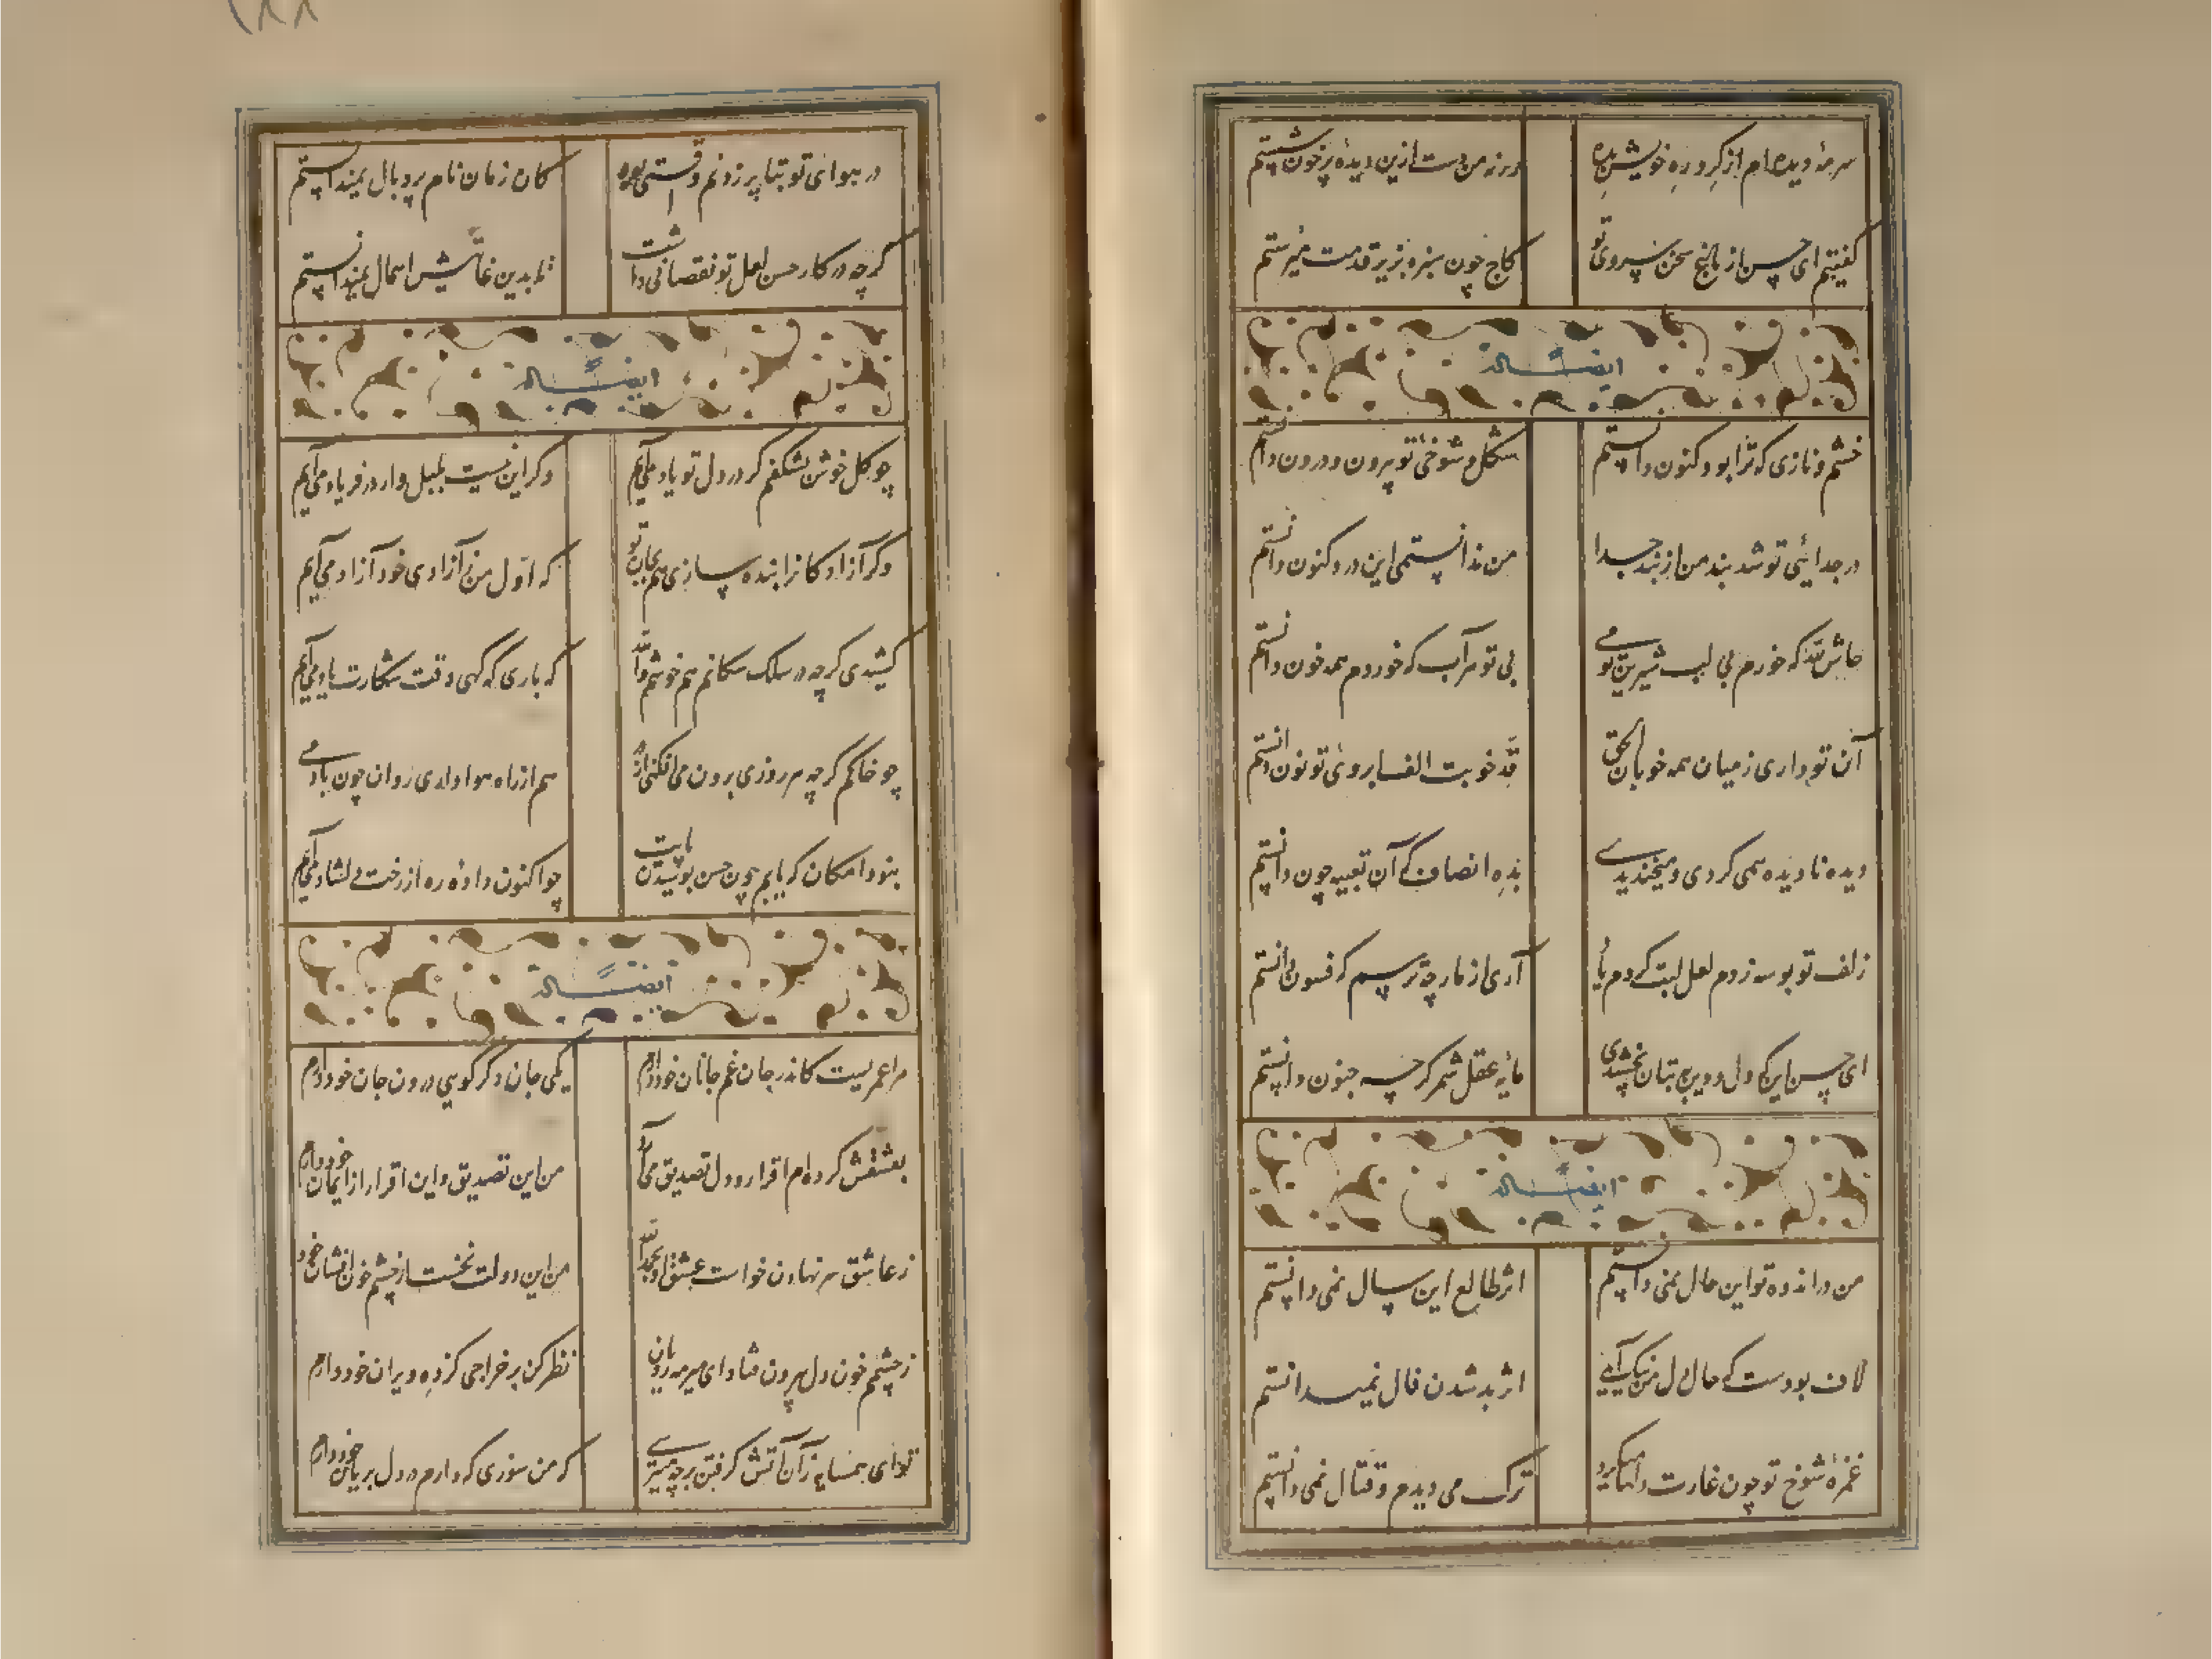 سرمهٔ دیده ام از گرد ره خویش بده
ورنه من دست ازین دیدهٔ پرخون شستم
گفتیم ای حسن از باغ سخن سروی تو
کاج چون سبزه بزیر قدمت میرستم
ایضاً له
خشم و نازی که ترا بود کنون دانستم
شکل و شوخی تو بیرون و درون دانستم
در جدایئی تو شد بند من از بند جدا
من ندانستمی این درد کنون دانستم
حاش لله که خورم بی لب شیرین تو می
بی تو هر آب که خوردم همه خون دانستم
آن تو داری ز میان همه خوبان الحق
قد خوبت الف ابروی تو نون دانستم
دیده نادیده همی کردی و میخندیدی
بده انصاف که آن تعبیه چون دانستم
زلف تو بوسه زدم لعل لبت کردم یاد
آری از مار چه ترسم که فسون دانستم
ای حسن اینک دل و دین به بتان بخشیدی
مایهٔ عقل شمر گرچه جنون دانستم
ایضاً له
من در اندوه تو این حال نمی دانستم
اثر طالع این سال نمی دانستم
لاف بودست که حال دل من نیک آیی
اثر بد شدن فال نمیدانستم
غمزهٔ شوخ تو چون غارت دلها میکرد
ترک می دیدم و قتال نمی دانستم
۱۸۸
در هوای تو بتا پر زدنم وقتی بود
کان زمان نام پر و بال نمیدانستم
گرچه در کار حسن لعل تو نقصانی داشت
تا بدین غایتش اهمال نمیدانستم
ایضاً له
چو گل خوش بشکفم گر در دل تو یاد می آیم
وگر این نیست بلبل وار در فریاد می آیم
وگر آزادگانرا بنده سازی هم بجان تو
که اول من ز آزادی خود آزاد می آیم
کشیدی گرچه در سلک سگانم هم خوشم والله
که باری گه گهی وقت شکارت یاد می آیم
چو خاکم گرچه هر روزی برون می افکنی از در
هم از راه هوا داری روان چون باد می
نبود امکان که یابم چون حسن بوسیدن پایت
چو اکنون داده ره از رخت دلشاد می آیم
ایضاً له
مرا عمریست کاندر جان غم جانان خود دارم
یکی جان دگر گویی درون جان خود دارم
بعشقش کرده ام اقرار و دل تصدیق می آرد
من این تصدیق و این اقرار از ایمان خود دارم
ز عاشق سر نهادن خواست عشق او بحمدالله
من این دولت نخست از چشم خون افشان خود
ز چشمم خون دل بیرون فتاد ای میر مه رویان
نظر کن بر خراجی کز ده ویران خود دارم
تو ای همسایه زان آتش گرفتن بر چه میترسی
که من سوزی که دارم در دل بریان خود دارم